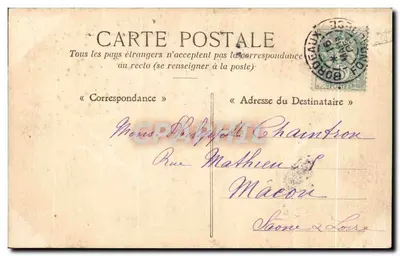 CARTE POSTALE
Tous les pays étrangers n'acceptent pas la correspondance
au recto (se renseigner à la poste)
« Correspondance »
« Adresse du Destinataire »
Chaintron
Rue Mathieu
Mâcon
Saône & Loire
BORDEAUX